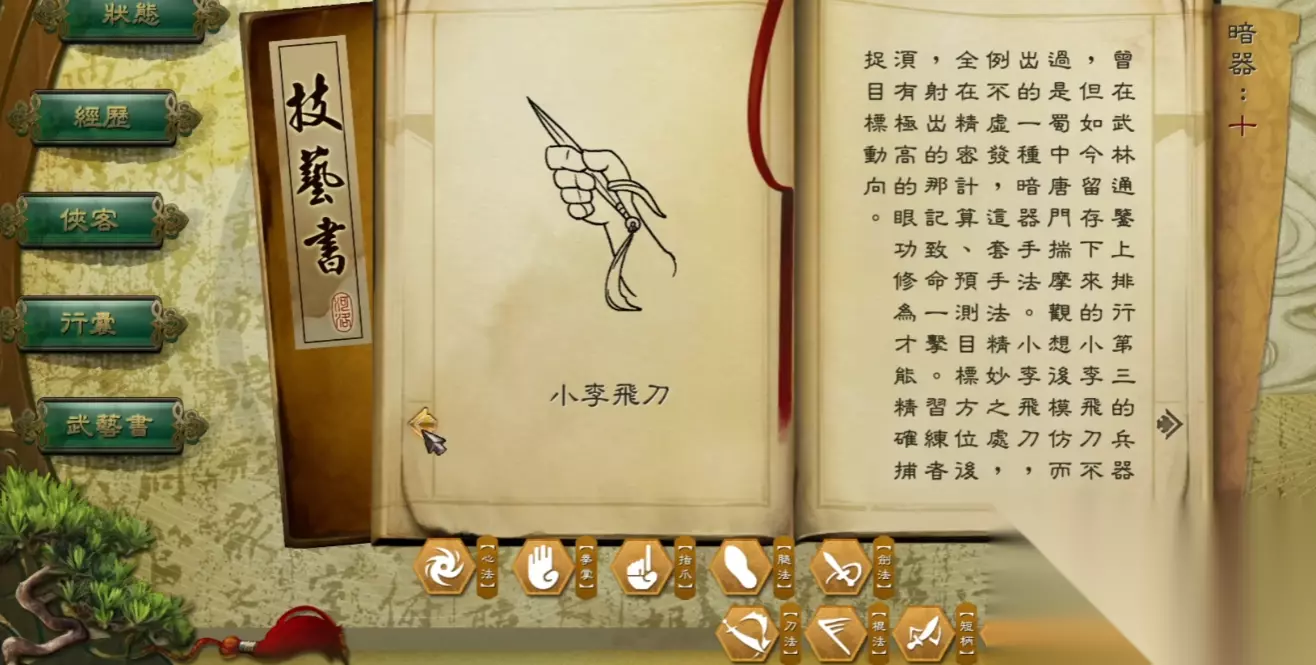 狀態
經歷
俠客
行囊
武藝書
技藝書
河洛
小李飛刀
暗器：十
曾在武林通鑒上排行第三的兵器
，但如今留存下來的小李飛刀不
過是蜀中唐門揣摩觀想後模仿而
出的一種暗器手法。小李飛刀，
例不虛發，這套手法精妙之處，
全在精密計算、預測目標方位後
，射出的那記致命一擊。習練者
須有極高的眼功修為才能精確捕
捉目標動向。
【心法】
【拳掌】
【指爪】
【腿法】
【劍法】
【刀法】
【棍法】
【短柄】